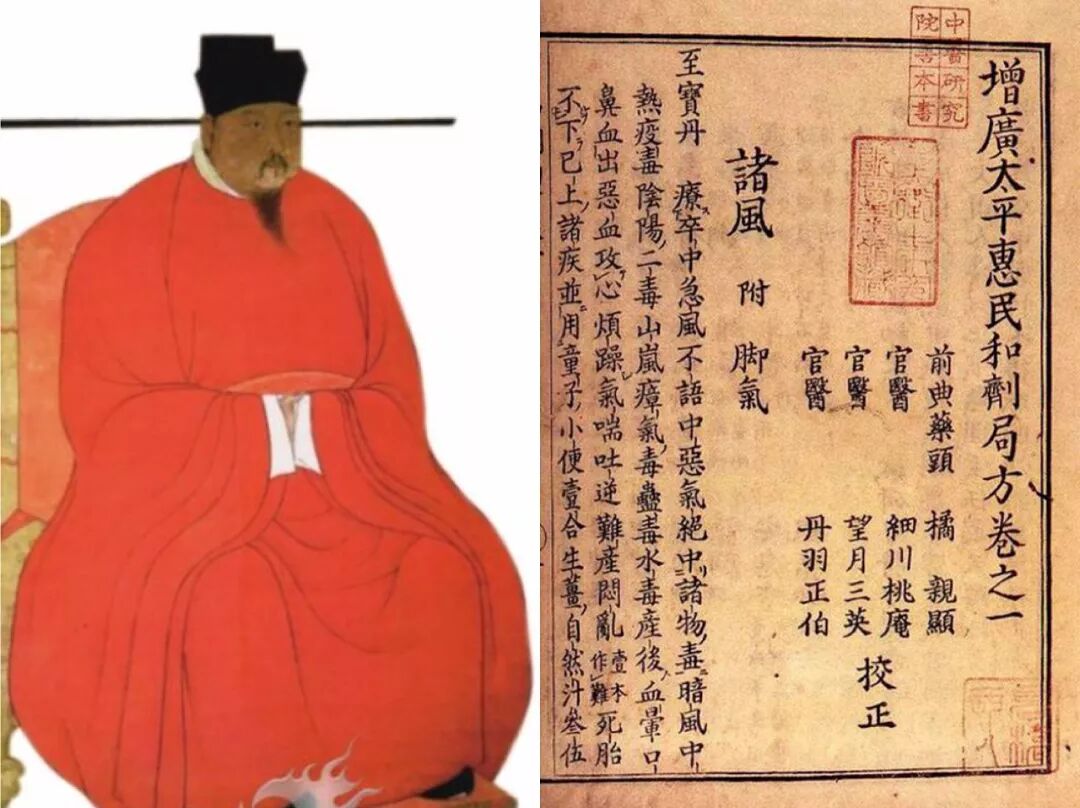 中醫研究
院善本書
增廣太平惠民和劑局方卷之一
前典藥頭 橘 親顯
官醫 細川桃庵
官醫 望月三英
官醫 丹羽正伯
校正
諸風 附 脚氣
至寶丹 療卒中急風不語中惡氣絕中諸物毒暗風中
熱疫毒陰陽二毒山嵐瘴氣毒蠱毒水毒產後血暈口
鼻血出惡血攻心煩躁氣喘吐逆難產悶亂壹本作難死胎
不下已上諸疾並用童子小便壹合生薑自然汁叄伍